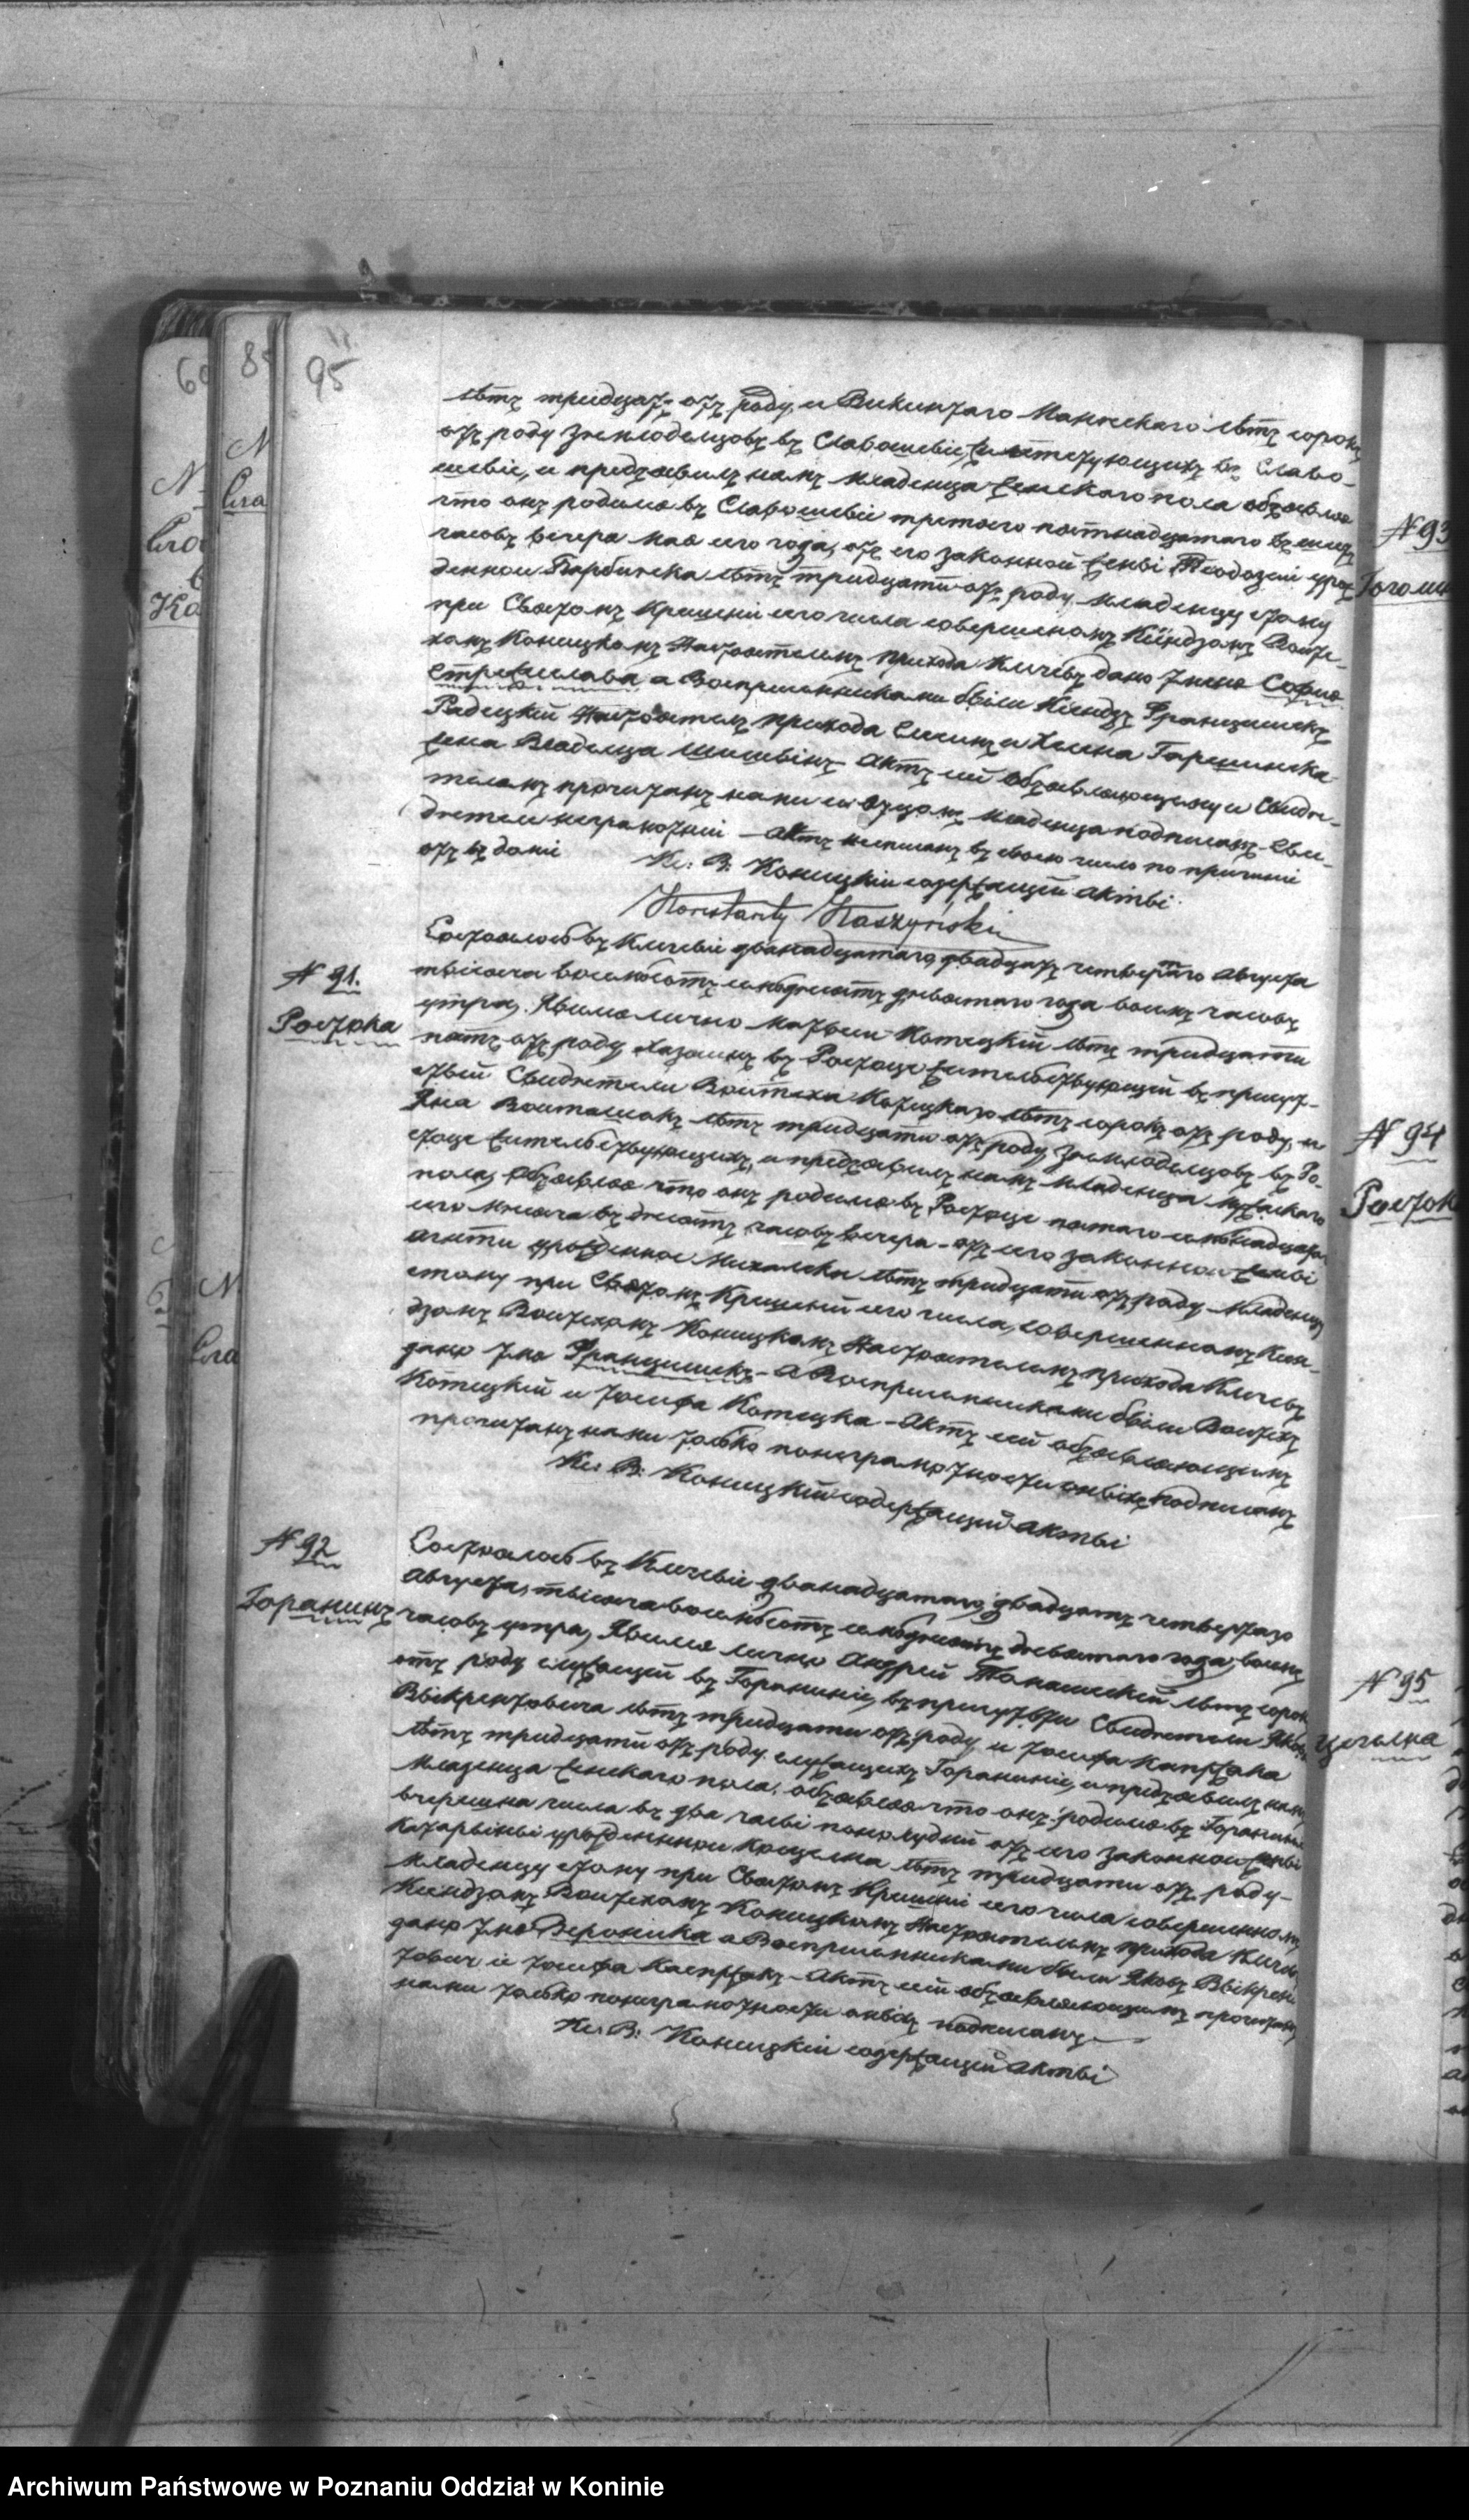 95
лѣтъ тридцать отъ роду, и Викентаго Манскаго лѣтъ сорокъ
отъ роду земледѣлцовъ въ Славошевіе, жителѣующихъ въ Славо-
шевіе, и предъявилъ намъ младенца женскаго пола объявляя
что онъ родился въ Славошевіе третьего пятнадцатаго въ шесть
часовъ вечера мая сего года, отъ его законной жены Теодозіи урож
денной Парбинска лѣтъ тридцати отъ роду младенцу етому
при Святомъ Крещеніи сего числа совершеномъ Ксіндзомъ Войце-
хомъ Коницкомъ Настоятелемъ прихода Клечевъ дано Имена Софія
Стрежислава а Воспріемниками были Ксіендзъ Францишекъ
Радецкій Настоятель прихода и Хелена Гарешинска
жена Владелца Шишинъ - Актъ сей объявляющему и Свидѣ-
телямъ прочитанъ нами и Отцомъ младенца подписанъ - Сви-
дѣтели неграмотніи - Актъ неписанъ въ своемъ число по причинѣ
Кс: В: Коницкій содержащій акты
Konstanty Kaszyński
N 91.
Ростока
Состоялось въ Клечевіе двѣнадцатаго двадцать четвертаго Августа
тысяча восемьсотъ семьдесятъ девятаго года восемь часовъ
утра, Явился лично Матеуш Котецкій лѣтъ тридцати
пять отъ роду, хазаинъ въ Ростоце жительствующій въ присут-
ствіи Свидѣтели Войтеха Котецкаго лѣтъ сорокъ отъ роду и
Яна Войташакъ лѣтъ тридцати отъ роду, земледѣлцовъ въ Ро-
стоце жительствующихъ, и предъявилъ намъ младенца мужскаго
пола, объявляя что онъ родился въ Ростоце пятаго семнадцата
сего мѣсяца въ десять часовъ вечера - отъ его законной жены
Агаты урожденной Михалска лѣтъ тридцати отъ роду - младенцу
етому при Святомъ Крещеніи сего числа, совершенномъ Ксен-
дзомъ Войтехомъ Коницкомъ Настоятелемъ прихода Клечевъ
дано Имя Францишекъ - а Воспріемниками были Войтехъ
Котецкій и Іозефа Котецка - Актъ сей объявляющимъ
прочитанъ нами только понеграмотности онѣхъ подписанъ
Кс: В: Коницкій содержащій Акты
N 92
Горанинъ
Состоялось въ Клечевіе двѣнадцатаго, двадцать четвертаго
Августа, тысяча восемьсотъ семьдесятъ девятаго года, восемь
часовъ утра, Явился лично Андрей Томашескій лѣтъ сорокъ
отъ роду служащій въ Гораниніе, въ присутвіи Свидѣтели Якова
Выкрентовича лѣтъ тридцати отъ роду и Іозефа Капржака
лѣтъ тридцати отъ роду служащихъ Гораниніе, и предъявилъ намъ
младенца женскаго пола, объявляя что онъ родился въ Гораниніе
вчерашна числа въ два часы пополудни отъ его законной жены
Катарины урожденной Коцелна лѣтъ тридцати отъ роду -
младенцу етому при Святомъ Крещеніи сего числа совершенномъ
Ксендзомъ Войтехомъ Коницкомъ Настоятелемъ прихода Клечевъ
дано Имя Вероника а Воспріемниками были Яковъ Выкрен-
тович и Іозефа Каспржакъ - Актъ сей объявляющимъ прочитанъ
нами только понеграмотности онѣхъ подписанъ
Кс: В: Коницкій содержащій Акты
N 93
N 94
Росток
N 95
Archiwum Państwowe w Poznaniu Oddział w Koninie